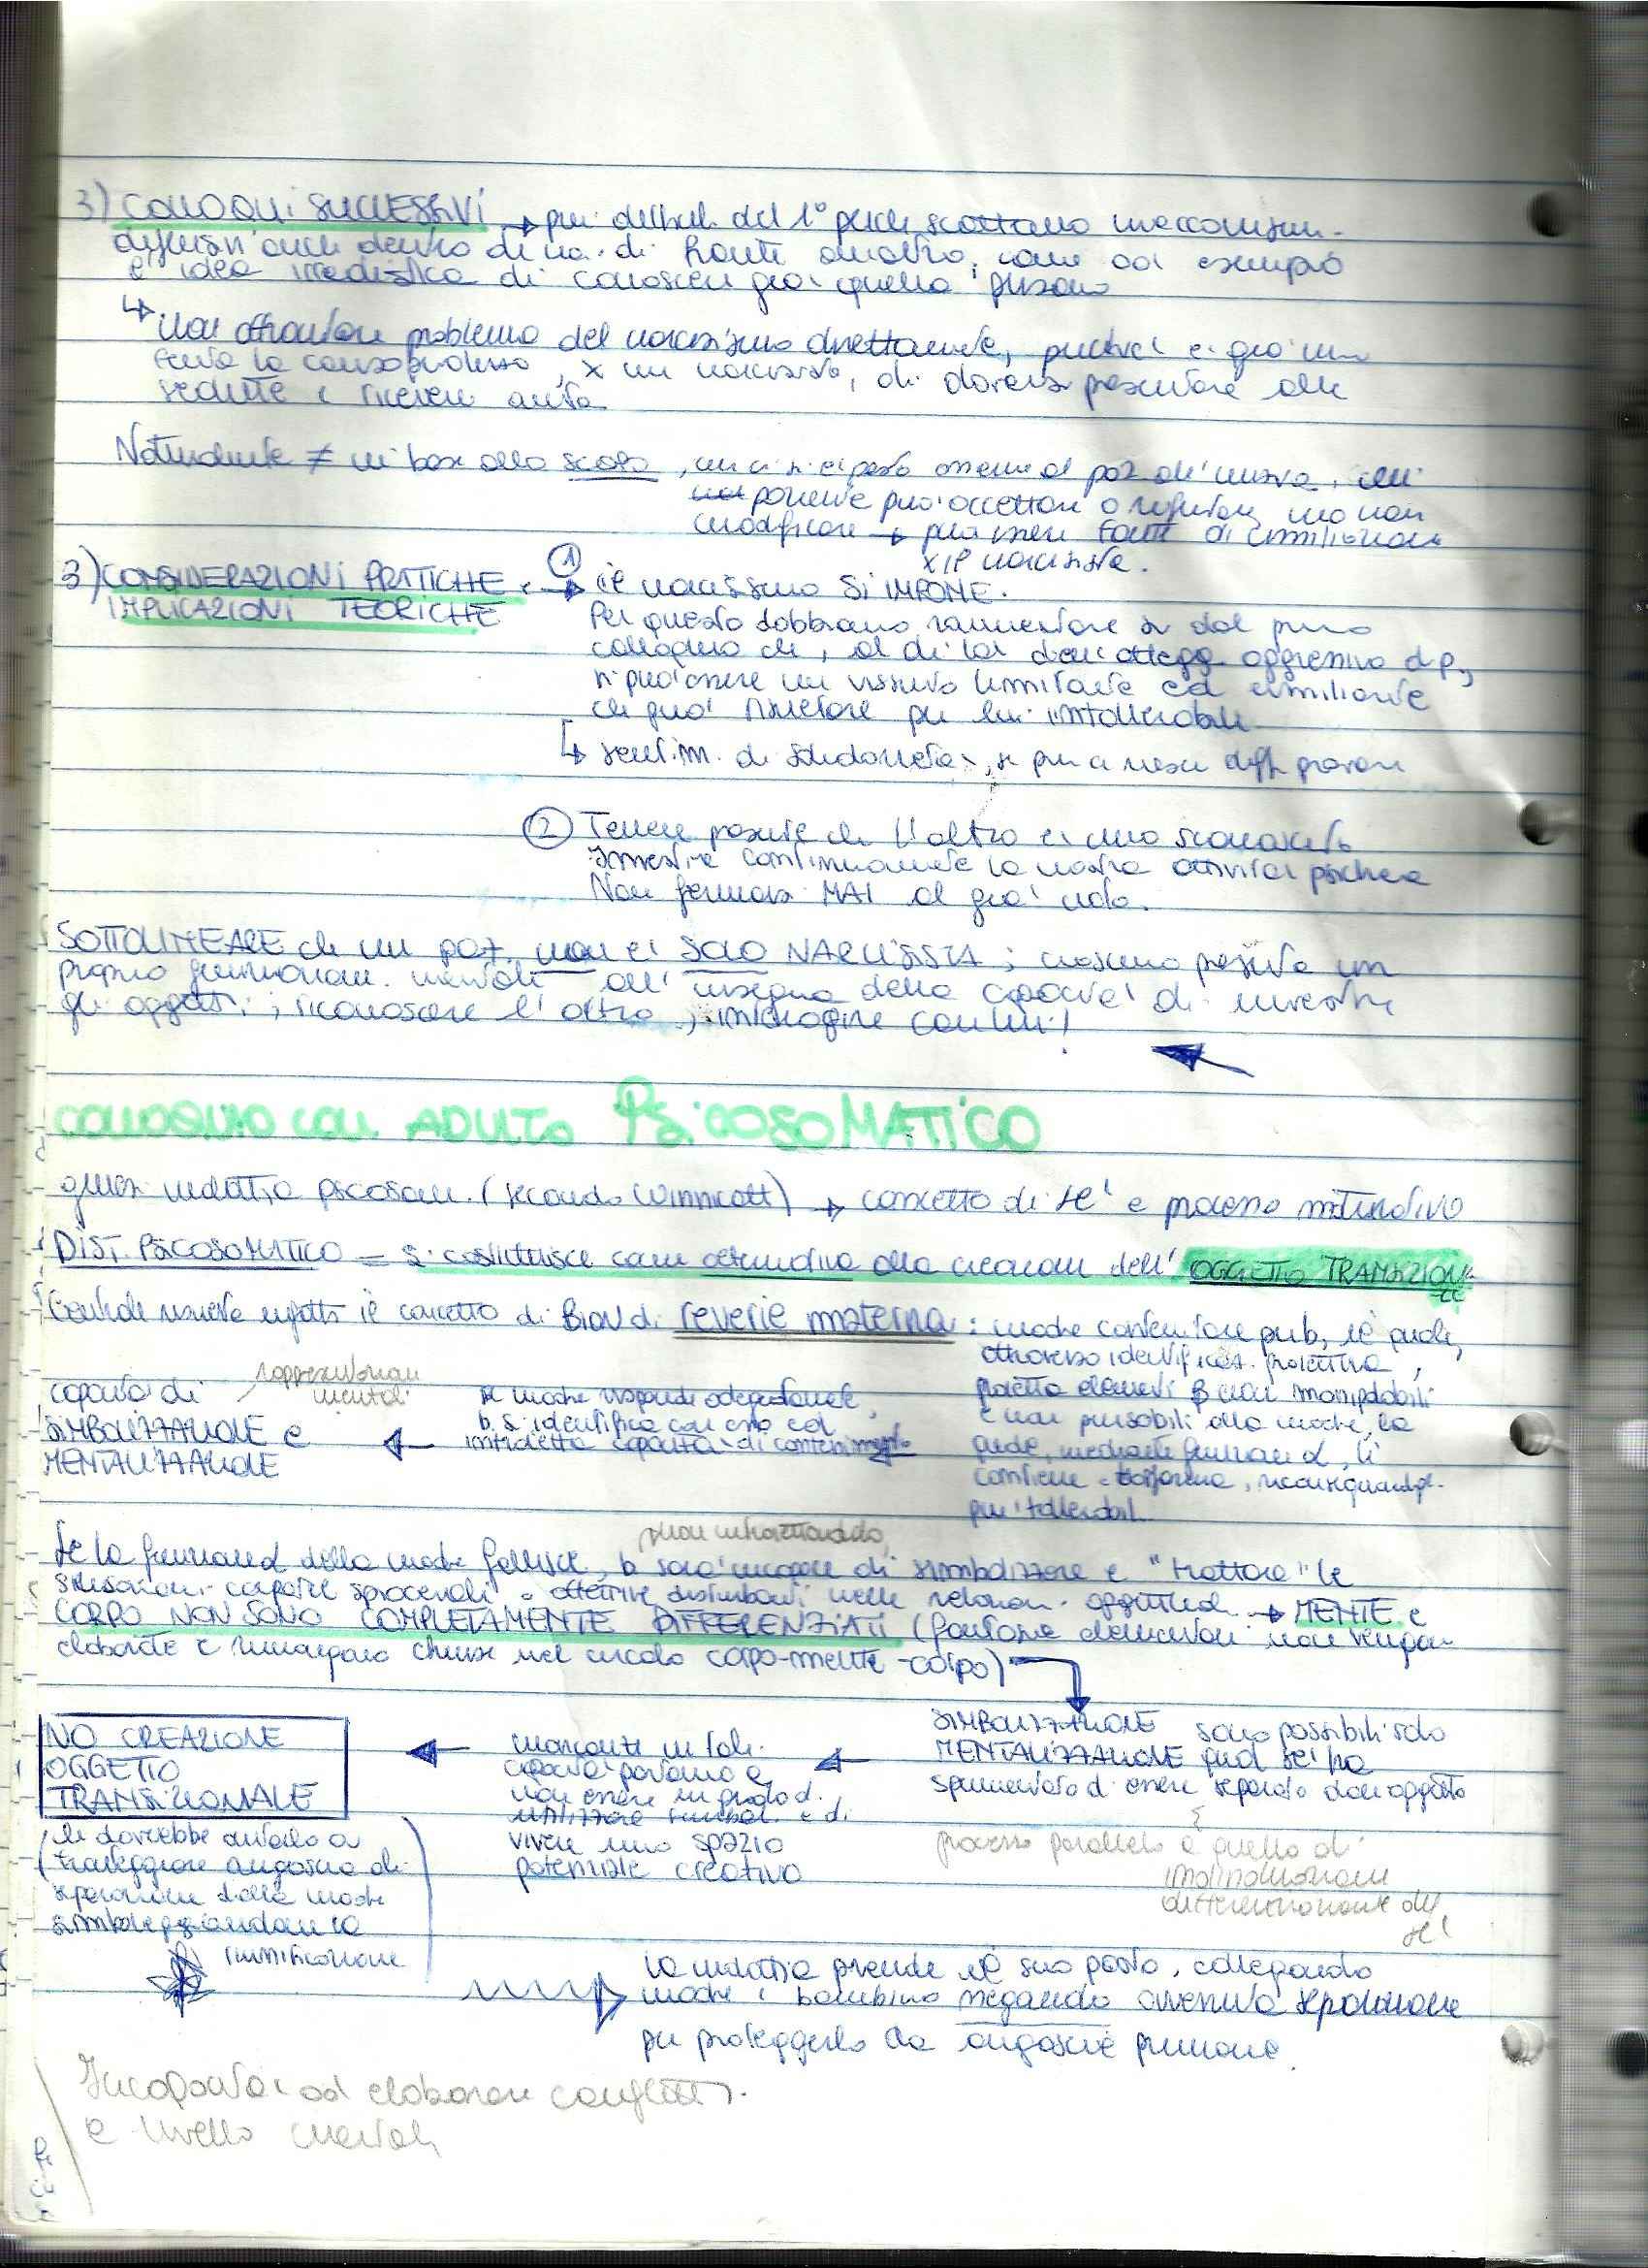 3) COLLOQUI SUCCESSIVI → più delicati del 1° perché scattano meccanismi
difensivi anche dentro di noi di fronte all'altro, come ad esempio
è idea irrealistica di conoscere già quella persona
↳ non affrontare problema del narcisismo direttamente, perché è già una
x un narcisista, di doversi presentare alle
sedute e ricevere aiuto
Naturalmente ≠ in base allo scopo,
paziente può accettare o rifiutare, ma non
modificare → può essere fonte di umiliazione
x il narcisista.
3) CONSIDERAZIONI PRATICHE e → ① il narcisismo SI IMPONE.
IMPLICAZIONI TEORICHE
Per questo dobbiamo rammentare sin dal primo
colloquio che, al di là dell'attegg. aggressivo d. p.,
ci può essere un vissuto limitante ed umiliante
che può risultare per lui intollerabile
↳ sentim. di solidarietà, se pur a volte diff. provare
② Tenere presente che l'altro è uno sconosciuto
Investire continuamente la nostra attività psichica
Non fermarsi MAI al già noto.
SOTTOLINEARE che un paz. non è SOLO NARCISISTA; nessuno presenta un
proprio funzionam. mentale all'insegna della capacità di investire
gli oggetti; riconoscere l'altro; interagire con lui!
COLLOQUIO CON ADULTO PSICOSOMATICO
genesi malattia psicosom. (secondo Winnicott) → concetto di sé e processo maturativo
DIST. PSICOSOMATICO = si costituisce come alternativa alla creazione dell'OGGETTO TRANSIZIONALE
Centrale risulta infatti il concetto di Bion di reverie materna: madre contenitore per b, il quale,
attraverso identificaz. proiettiva,
proietta elementi β non manipolabili
e non pensabili alla madre, la
quale, mediante funzione α, li
contiene e trasforma,
più tollerabili
se madre risponde adeguatamente,
b. si identifica con essa ed
introietta capacità di contenimento
←
rappresentazioni
mentali
capacità di
SIMBOLIZZAZIONE e
MENTALIZZAZIONE
non introiettandola,
Se la funzione α della madre fallisce, b sarà incapace di simbolizzare e "trattare" le
sensazioni corporee spiacevoli e affettive disturbanti nelle relazioni oggettuali → MENTE e
CORPO NON SONO COMPLETAMENTE DIFFERENZIATI (fantasie elementari non vengon
elaborate e rimangono chiuse nel circolo corpo-mente-corpo)
SIMBOLIZZAZIONE
MENTALIZZAZIONE sono possibili solo
quando sé ha
sperimentato di essere separato dall'oggetto
processo parallelo a quello di
individuazione
differenziazione del
sé
← mancanti in tali
capacità portano a
non essere in grado di
utilizzare simboli e di
vivere uno spazio
potenziale creativo
← NO CREAZIONE
OGGETTO
TRANSIZIONALE
(che dovrebbe aiutarlo a
fronteggiare angoscia di
separazione dalla madre
simboleggiandone la
riunificazione)
la malattia prende il suo posto, collegando
madre e bambino negando avvenuta separazione
per proteggerlo da angoscie primarie.
Incapacità ad elaborare conflitti
a livello mentale